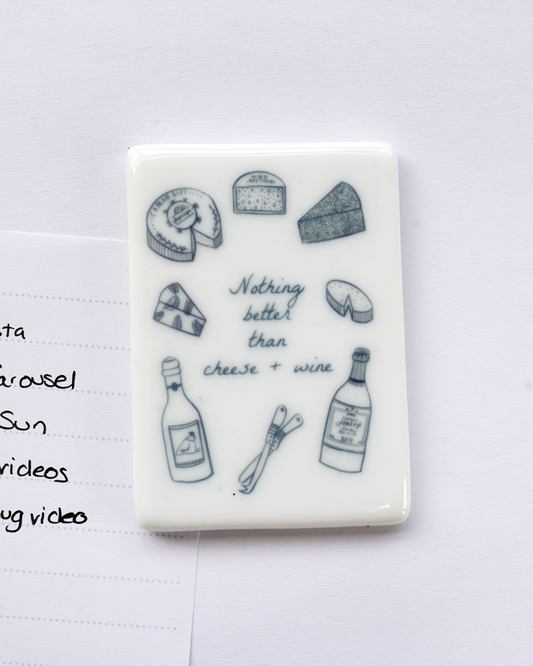 Nothing
better
than
cheese + wine
ta
arousel
Sun
videos
ug video